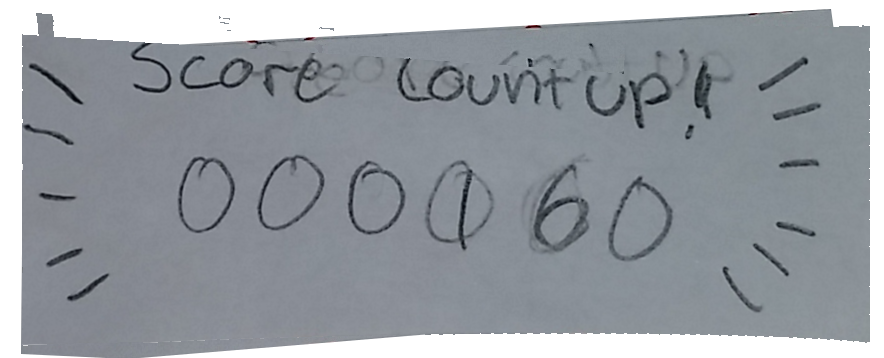 Score count up!
000160